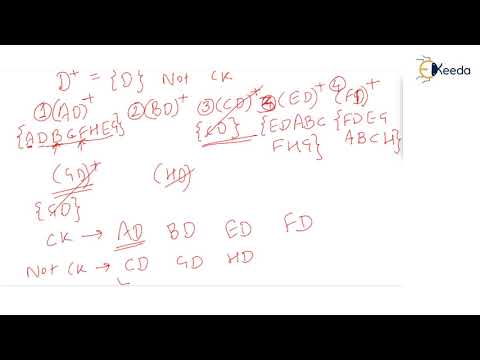 D+ = {D} Not CK
① (AD)+ ② (BD)+ ③ (CD)+ (ED)+ ④ (FD)+
{ADBCFHEG} {CD} {EDABC FHG} {FDEG ABCH}
(GD)+ (HD)
{GD}
CK → AD BD ED FD
Not CK → CD GD HD
EKeeda